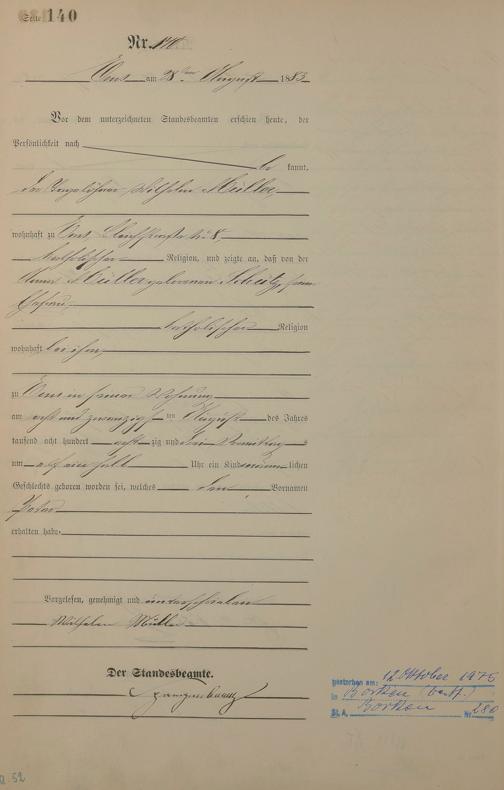 Seite 140
Nr. 140
Ems am 28ten August 1883
Vor dem unterzeichneten Standesbeamten erschien heute, der
Persönlichkeit nach
be kannt,
der Wilhelm Müller
wohnhaft zu Ems, N. 8,
katholischer Religion, und zeigte an, daß von der
Müller geborenen seiner
Ehefrau,
katholischer Religion
wohnhaft bei ihm
zu Ems in seiner Wohnung
am acht und zwanzigsten August des Jahres
tausend acht hundert acht zig und drei Vormittags
um elf ein halb Uhr ein Kind männlichen
Geschlechts geboren worden sei, welches den Vornamen
Peter
erhalten habe.
Vorgelesen, genehmigt und unterschrieben
Wilhelm Müller
Der Standesbeamte.
gestorben am: 12 Oktober 1976
in Borken (Westf.)
St. A. Borken Nr. 280